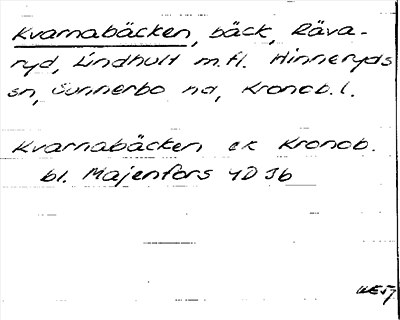 Kvarnabäcken, bäck, Räva-
ryd, Lindhult m.fl. Hinneryds
sn, Sunnerbo hd, Kronob. l.
Kvarnabäcken ek Kronob.
bl. Majenfors 4D Jb